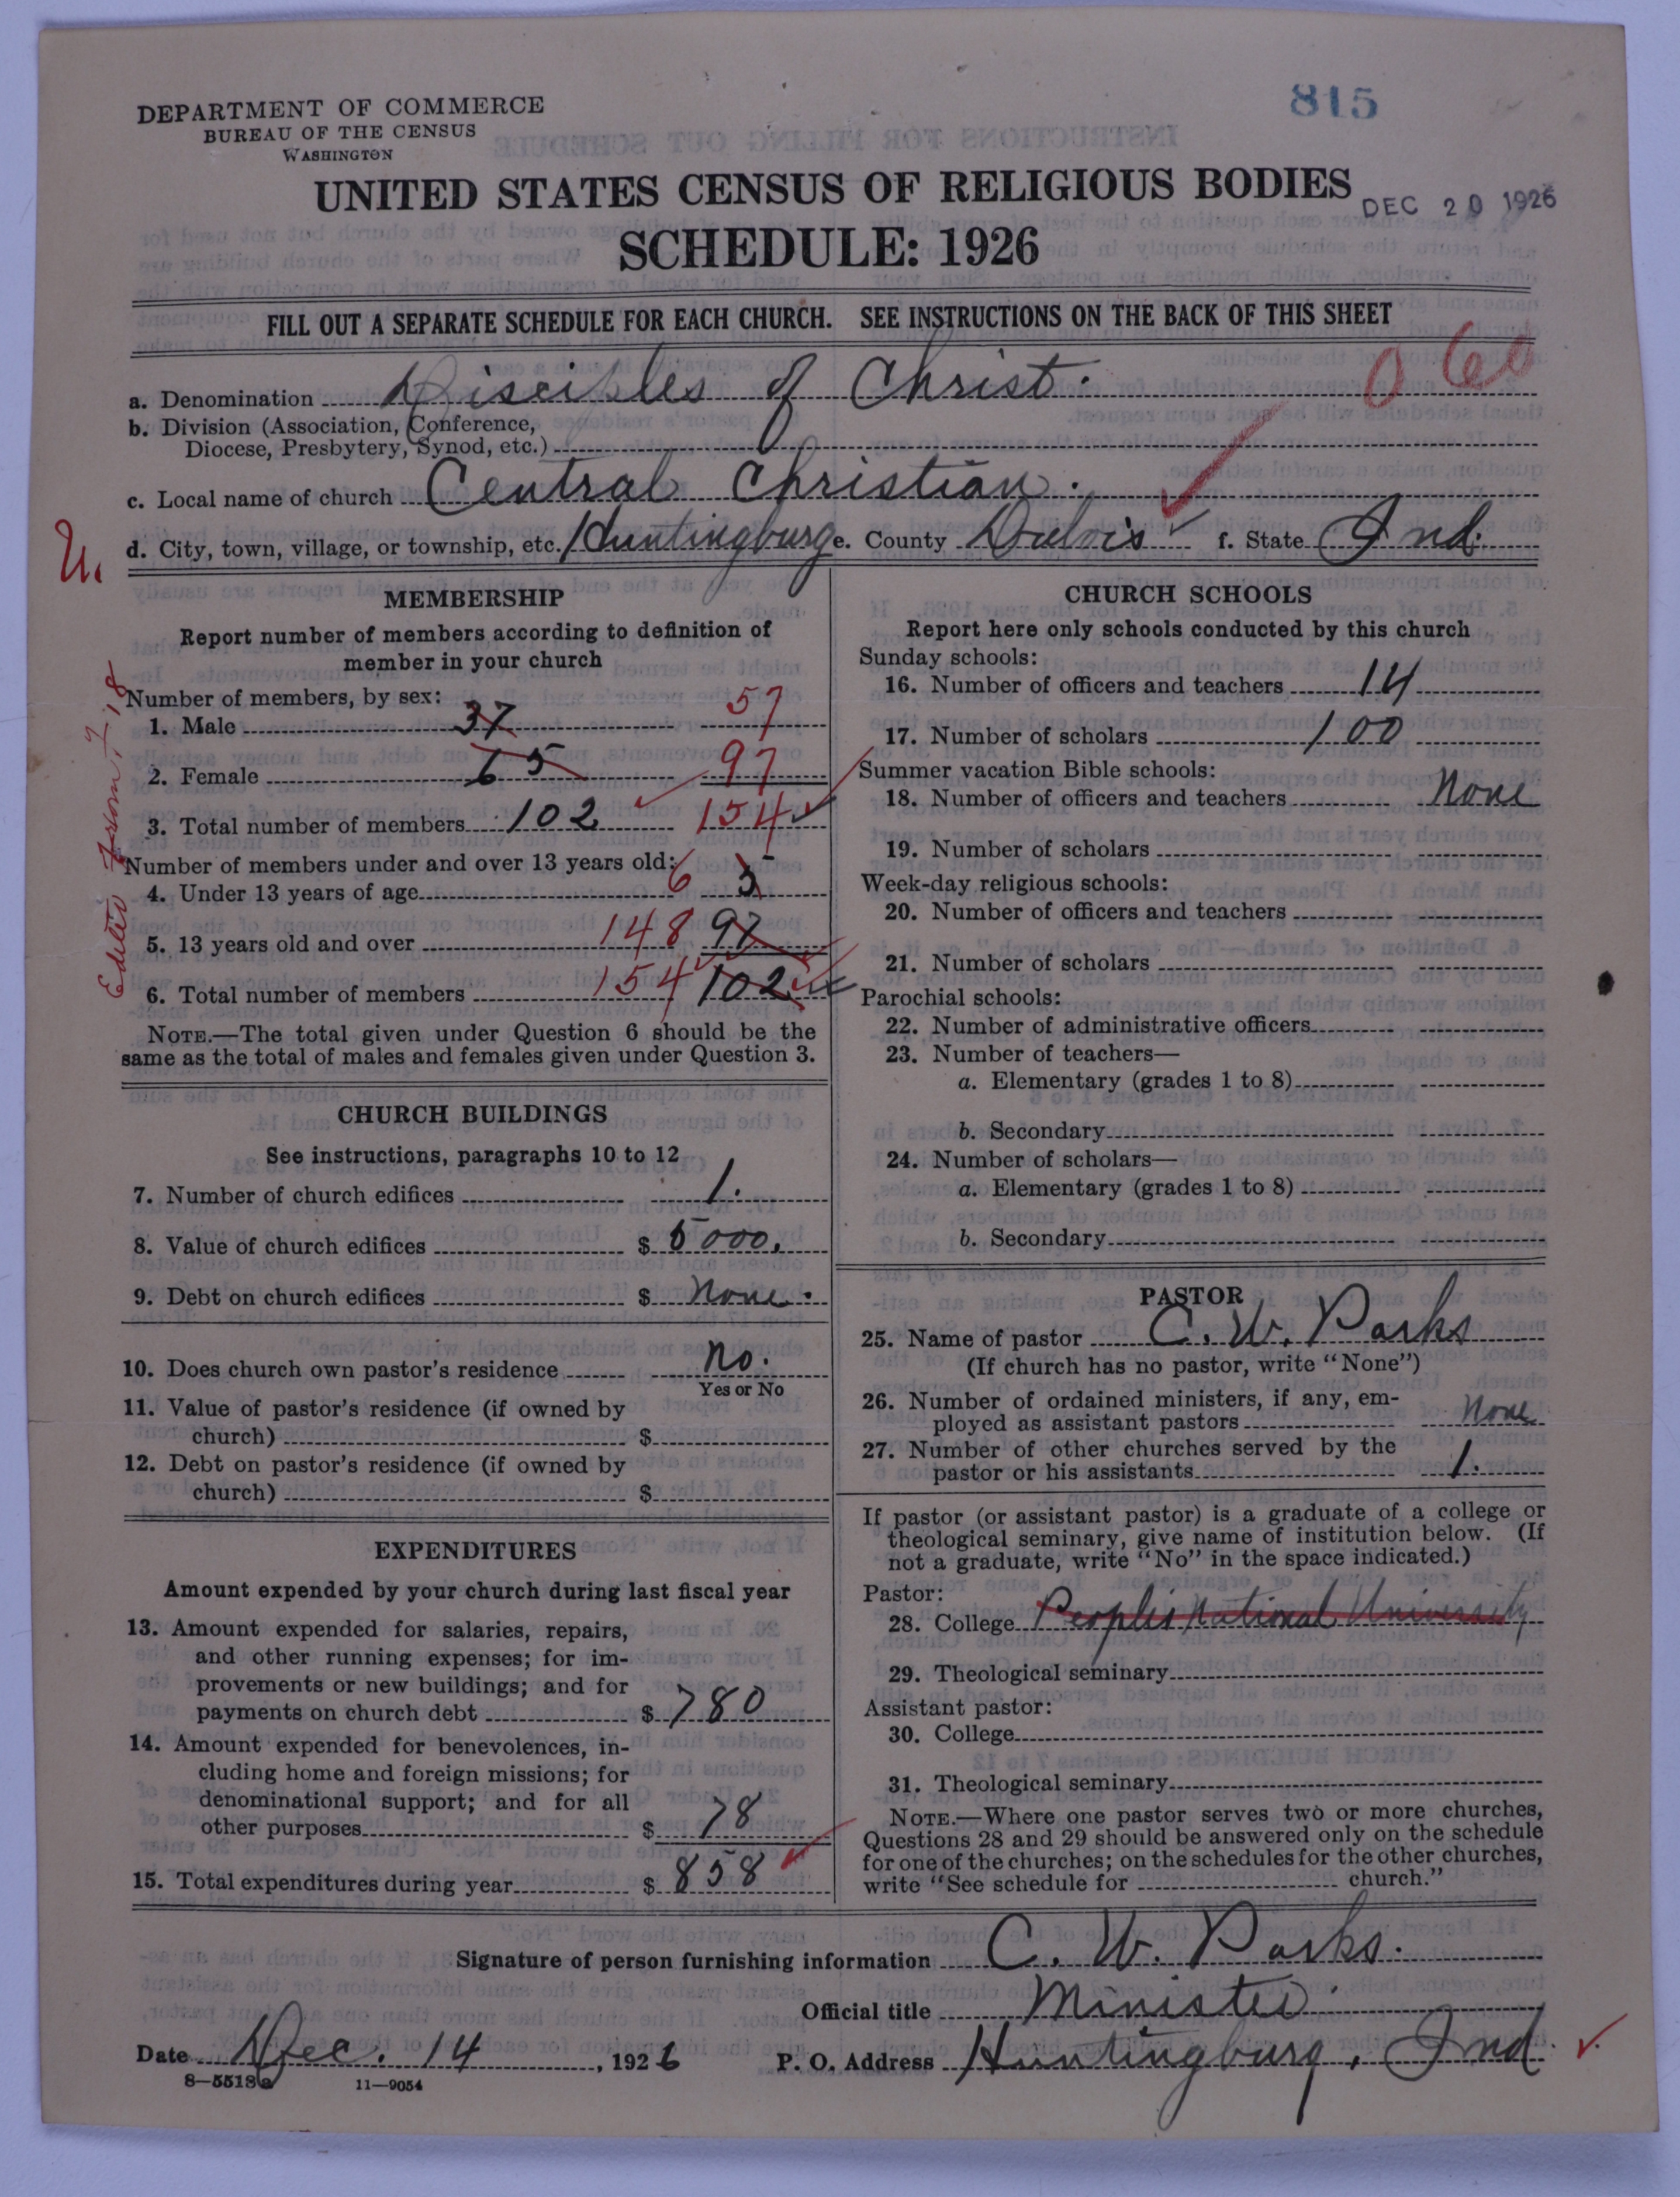 DEPARTMENT OF COMMERCE
BUREAU OF THE CENSUS
WASHINGTON
815
UNITED STATES CENSUS OF RELIGIOUS BODIES
DEC 20 1926
SCHEDULE: 1926
FILL OUT A SEPARATE SCHEDULE FOR EACH CHURCH. SEE INSTRUCTIONS ON THE BACK OF THIS SHEET
060
a. Denomination Disciples of Christ.
b. Division (Association, Conference,
Diocese, Presbytery, Synod, etc.)
c. Local name of church Central Christian.
U.
d. City, town, village, or township, etc. Huntingburg e. County Dubois f. State Ind.
MEMBERSHIP
Report number of members according to definition of
member in your church
Number of members, by sex:
1. Male 37 57
2. Female 65 97
3. Total number of members 102 154
Number of members under and over 13 years old:
4. Under 13 years of age 6 5
5. 13 years old and over 148 97
6. Total number of members 154 102
NOTE.—The total given under Question 6 should be the
same as the total of males and females given under Question 3.
CHURCH BUILDINGS
See instructions, paragraphs 10 to 12
7. Number of church edifices 1.
8. Value of church edifices $ 5000.
9. Debt on church edifices $ None.
10. Does church own pastor's residence No.
Yes or No
11. Value of pastor's residence (if owned by
church) $
12. Debt on pastor's residence (if owned by
church) $
EXPENDITURES
Amount expended by your church during last fiscal year
13. Amount expended for salaries, repairs,
and other running expenses; for im-
provements or new buildings; and for
payments on church debt $ 780
14. Amount expended for benevolences, in-
cluding home and foreign missions; for
denominational support; and for all
other purposes $ 78
15. Total expenditures during year $ 858
CHURCH SCHOOLS
Report here only schools conducted by this church
Sunday schools:
16. Number of officers and teachers 14
17. Number of scholars 100
Summer vacation Bible schools:
18. Number of officers and teachers None
19. Number of scholars
Week-day religious schools:
20. Number of officers and teachers
21. Number of scholars
Parochial schools:
22. Number of administrative officers
23. Number of teachers—
a. Elementary (grades 1 to 8)
b. Secondary
24. Number of scholars—
a. Elementary (grades 1 to 8)
b. Secondary
PASTOR
25. Name of pastor C. W. Parks
(If church has no pastor, write "None")
26. Number of ordained ministers, if any, em-
ployed as assistant pastors None
27. Number of other churches served by the
pastor or his assistants 1.
If pastor (or assistant pastor) is a graduate of a college or
theological seminary, give name of institution below. (If
not a graduate, write "No" in the space indicated.)
Pastor:
28. College Peoples National University
29. Theological seminary
Assistant pastor:
30. College
31. Theological seminary
NOTE.—Where one pastor serves two or more churches,
Questions 28 and 29 should be answered only on the schedule
for one of the churches; on the schedules for the other churches,
write "See schedule for church."
Signature of person furnishing information C. W. Parks.
Official title Minister.
Date Dec. 14, 1926 P. O. Address Huntingburg, Ind.
8—5518a 11—9054